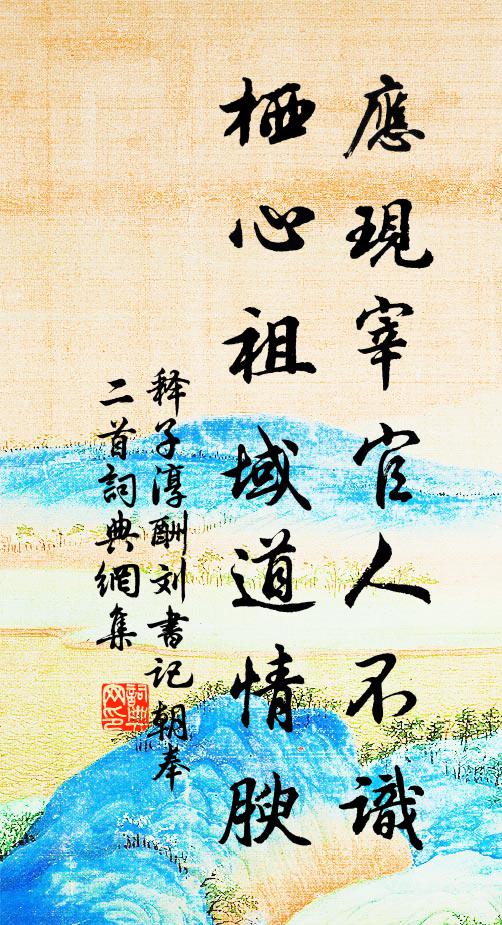 應現宰官人不識
栖心祖域道情腴
释子淳酬刘書记朝奉
二首詞典網集
詞典網印